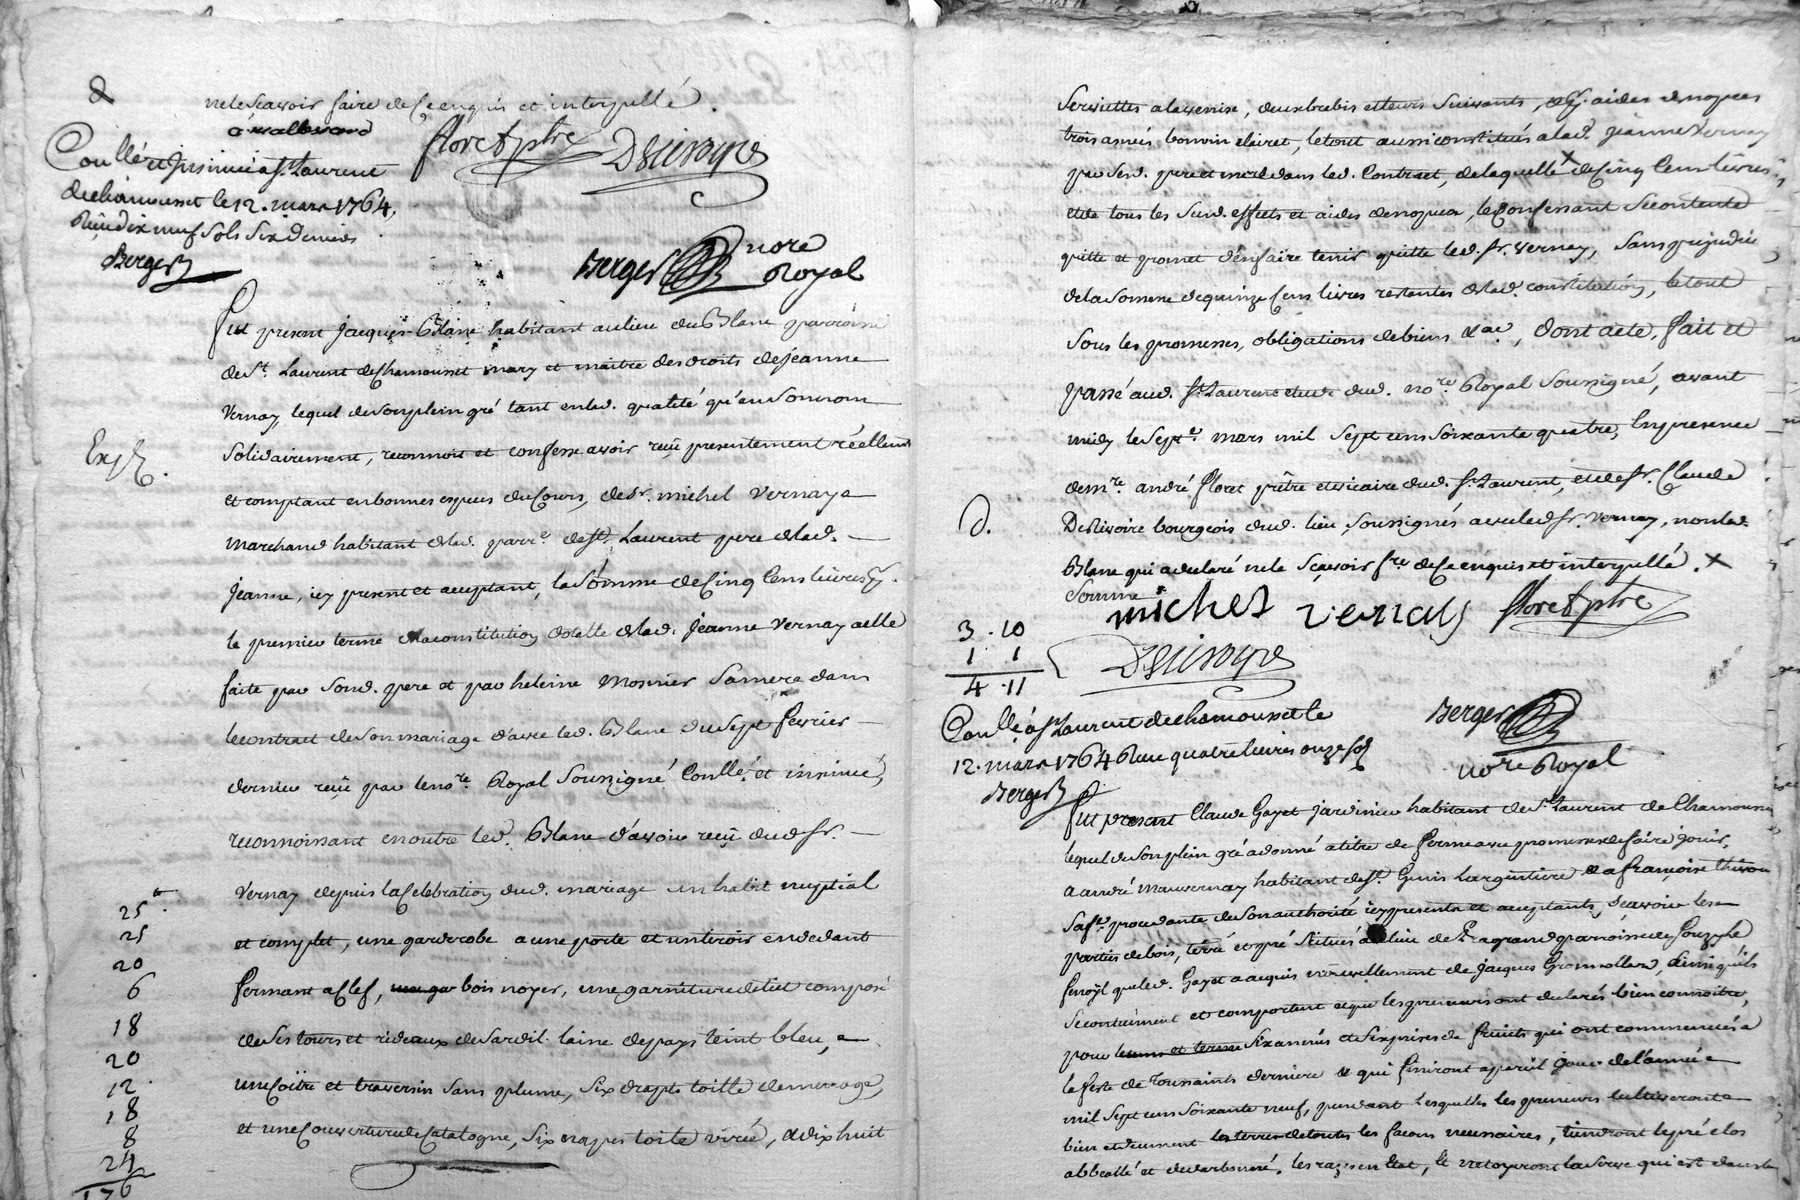 ne le scavoir faire de ce enquis et interpellé.
à vallevard
floret ptre Desivoyre
Coullé et Insinué a st. Laurent
de chamousset le 12. mars 1764.
Reçu dix neuf sols six deniers
Berger
Berger nore
Royal
fut present Jacques Blanc habitant au lieu du Blanc parroisse
de st. Laurent de Chamousset mary et maitre des droits de jeanne
Vernay, lequel de son plein gré tant en lad. qualité qu'en son nom
solidairement, reconnoit et confesse avoir reçü presentement réellemt
Exp.
et comptant en bonnes especes du cours, de sr. michel Vernay
marchand habitant de lad. parre. de st. Laurent pere de lad.
jeanne, icy present et acceptant, la somme de Cinq Cens livres
le premier terme de la constitution dotalle de lad. jeanne Vernay a elle
faite par sond. pere et par heleine mosnier sa mere dans
le contract de son mariage d'avec led. Blanc du sept fevrier
dernier reçü par le nore Royal soussigné Coullé et insinué,
reconnoissant en outre led. Blanc d'avoir reçü dud. sr.
Vernay depuis la Celebration dud. mariage un habit nuptial
et complet, une garderobe a une porte et un tiroir en dedant
fermant a clef, bois noyer, une garniture de lict composé
de ses tours et rideaux de sardil laine de pays teint bleu,
une coïtre et traversin sans plume, six draps toille de menage,
et une couverture de Catalogne, six napes toile virée, dix huit
25
25
20
6
18
20
12
18
8
24
176
serviettes a la venise, deux brebis et leurs suivants, aides de nopces
trois asnés bon vin clairet, le tout aussi constitués a lad. jeanne Vernay
par sesd. pere et mere dans led. Contract, de laquelle de Cinq Cens livres
et de tous les susd. effets et aides de nopces, le confessant se contente
quitte et promet d'en faire tenir quitte led. sr. Vernay, sans prejudice
de la somme de quinze Cens livres restantes de lad. constitution, le tout
sous les promesses, obligations de biens &ae, dont acte, fait et
passé aud. st. Laurent etude dud. nore Royal soussigné, avant
midy le sept. mars mil sept cens soixante quatre, En presence
de mre. andré floret prêtre et vicaire dud. st. Laurent, et de sr. Claude
Desivoire bourgeois dud. lieu, soussignés avec led. sr. Vernay, non led.
Blanc qui a declaré ne le sçavoir fre de ce enquis et interpellé. x
somme
michel vernay floret ptre
3 . 10
1 . 1
4 . 11
Desivoyre
Coullé a st Laurent de chamousset le
12. mars 1764 Reçu quatre livres onze sols
Berger
Berger
nore Royal
fut present Claude Gayet jardinier habitant de st. Laurent de Chamousset
lequel de son plein gré a donné a titre de ferme avec promesse de faire jouir,
a andré mauvernay habitant de st. Genis Largentiere & a françoise
sa fe. procedante de son authorité icy presents et acceptants, scavoir les
parties de bois, terre et pré situés au lieu de parroisse de souzy
que led. Gayet a acquis nouvellement de jacques ainsi qu'ils
se contiennent et comportent et que les preneurs ont declarés bien connoitre,
pour six années et six prises de fruits qui ont commencés a
la feste de toussaints derniere & qui finiront a pareil jour de l'année
mil sept cens soixante neuf, pendant lesquelles les preneurs cultiveront
bien et duement les terres de toutes les façons necessaires, tiendront le pré clos
les razes en etat, & nettoyeront la serve qui est dans